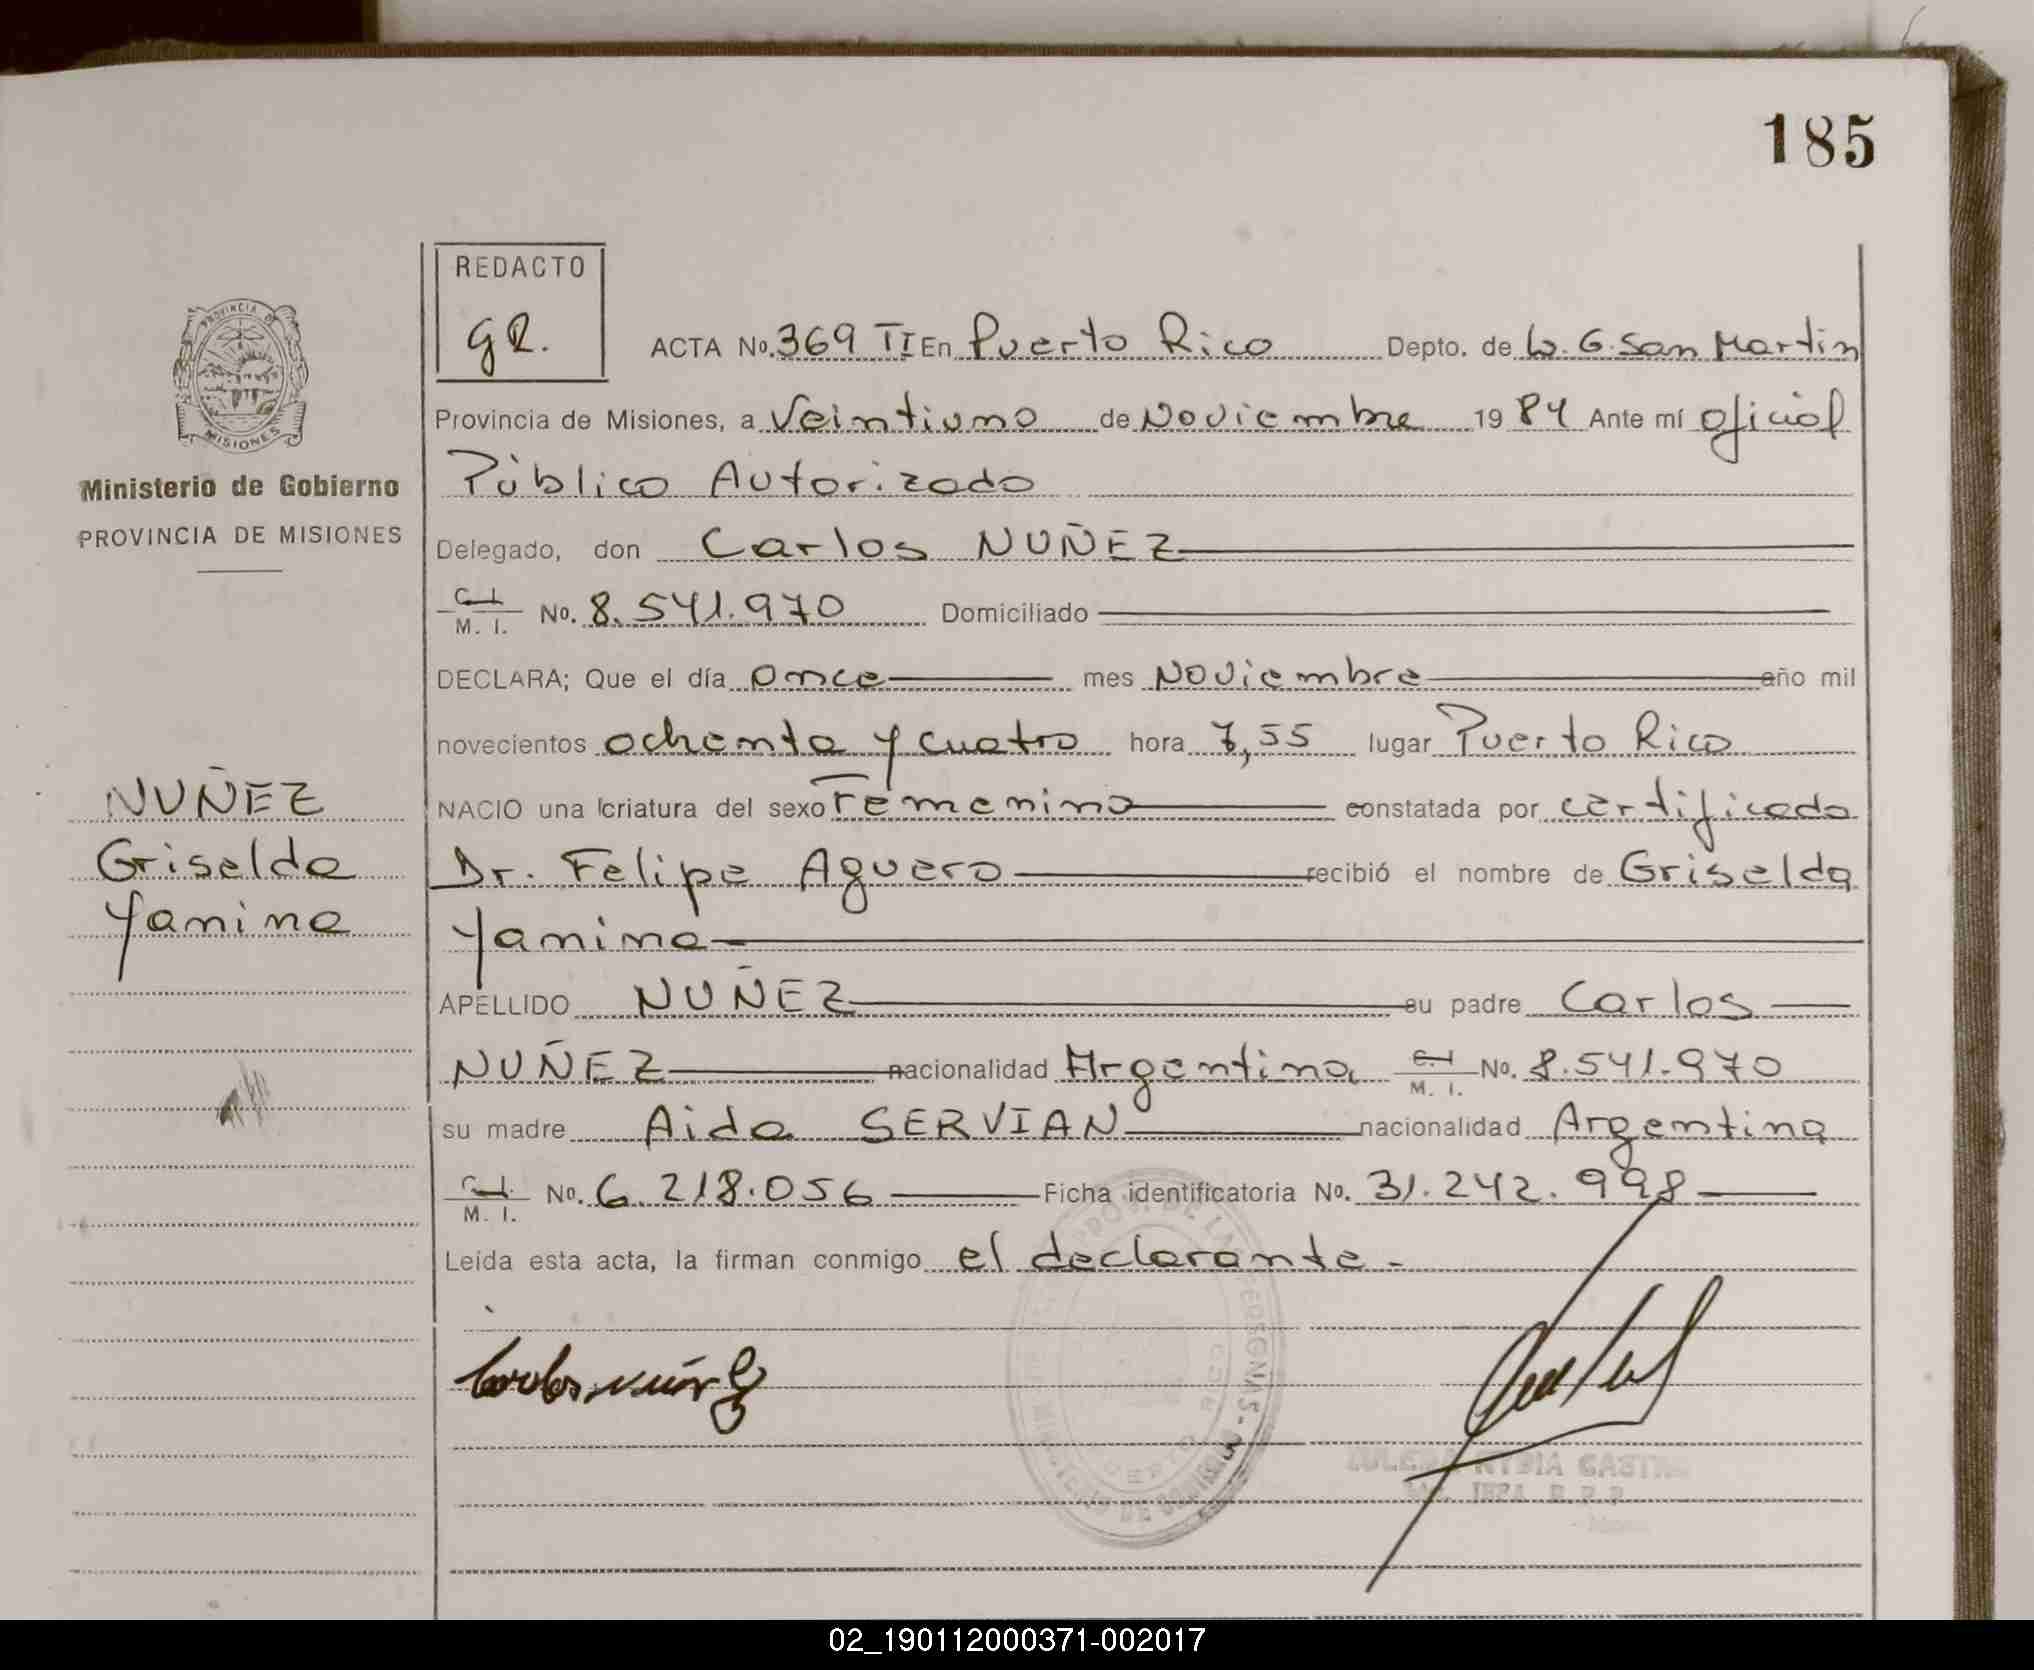 185
REDACTO
GR.
ACTA No. 369 TI En Puerto Rico Depto. de L. G. San Martin
Provincia de Misiones, a Veintiuno de Noviembre 1984 Ante mí oficial
Público Autorizado
Delegado, don Carlos NUÑEZ
C. I. M. I. No. 8.541.970 Domiciliado
DECLARA; Que el día once mes Noviembre año mil
novecientos ochenta y cuatro hora 7,55 lugar Puerto Rico
NACIO una criatura del sexo Femenino constatada por certificado
Dr. Felipe Aguero recibió el nombre de Griselda
Yamina
APELLIDO NUÑEZ su padre Carlos
NUÑEZ nacionalidad Argentina C. I. M. I. No. 8.541.970
su madre Aida SERVIAN nacionalidad Argentina
C. I. M. I. No. 6.218.056 Ficha identificatoria No. 31.242.998
Leída esta acta, la firman conmigo el declarante.-
Carlos Nuñez
PROVINCIA DE
MISIONES
Ministerio de Gobierno
PROVINCIA DE MISIONES
NUÑEZ
Griselda
Yamina
02_190112000371-002017